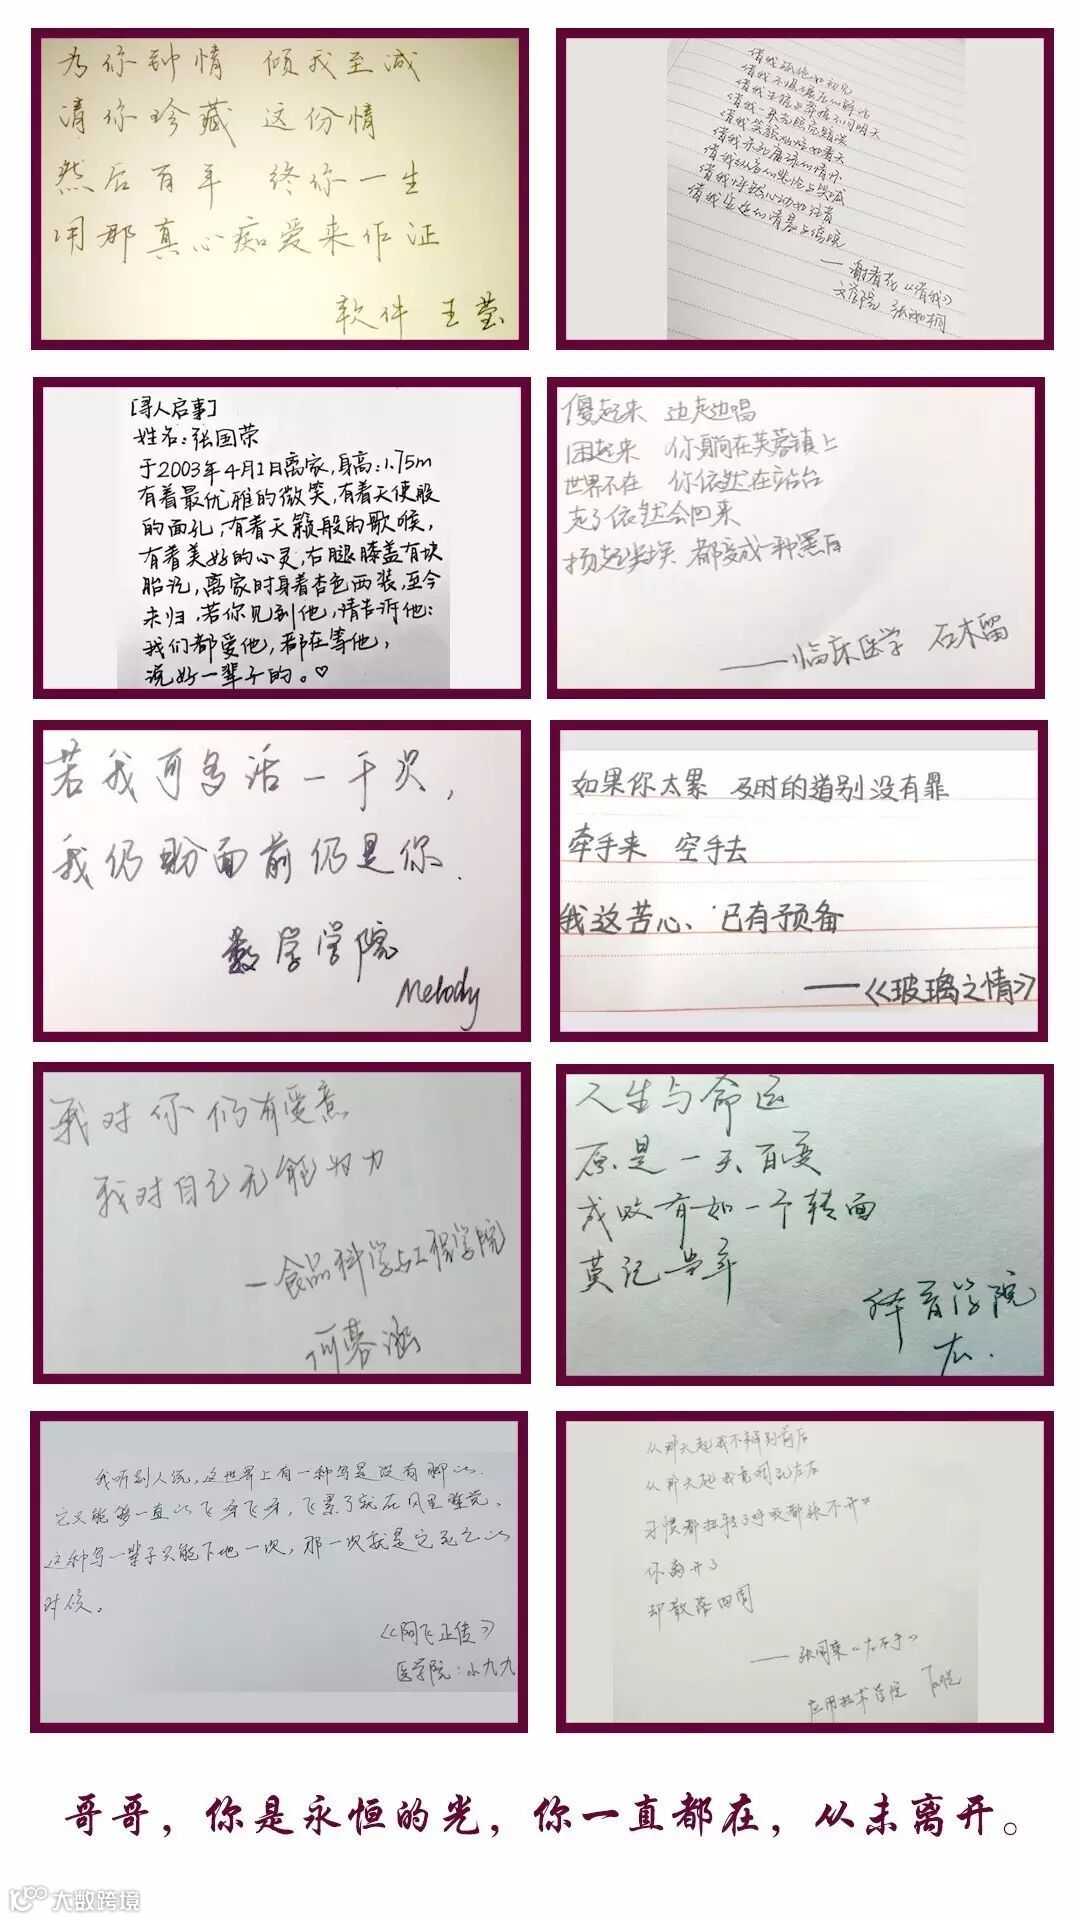 为你钟情 倾我至诚
请你珍藏 这份情
然后百年 终你一生
用那真心痴爱来作证
软件 王莹
借我孤绝如初见
借我不惧碾压的鲜活
借我生猛与莽撞不问明天
借我一束光照亮黯淡
借我笑颜灿烂如春天
借我杀死庸碌的情怀
借我纵容的悲怆与哭喊
借我怦然心动如往昔
借我安适的清晨与傍晚
——谢春花《借我》
文学院
[寻人启事]
姓名:张国荣
于2003年4月1日离家,身高:1.75m
有着最优雅的微笑,有着天使般
的面孔,有着天籁般的歌喉,
有着美好的心灵,右腿膝盖有块
胎记,离家时身着杏色西装,至今
未归,若你见到他,请告诉他:
我们都爱他,都在等他,
说好一辈子的。♡
傻起来 边走边唱
困起来 你躺在芙蓉镇上
世界不在 你依然在站台
走了依然会回来
扬起尘埃 都变成一种黑白
——临床医学 石木留
若我可多活一千次,
我仍盼面前仍是你.
数学学院
Melody
如果你太累 及时的道别没有罪
牵手来 空手去
我这苦心、已有预备
——《玻璃之情》
我对你仍有爱意
我对自己无能为力
—食品科学与工程学院
何蓉涵
人生与命运
原是一天百变
成败有如一个转面
莫记当年
体育学院
我听别人说,这世界上有一种鸟是没有脚的.
它只能够一直的飞呀飞呀,飞累了就在风里睡觉.
这种鸟一辈子只能下地一次,那一次就是它死亡的
时候。
《阿飞正传》
医学院:小九九
从那天起我不辨别前后
从那天起我竟调乱左右
习惯都扭转了呼吸都张不开口
你离开了
却散落四周
——张国荣《左右手》
应用技术学院
哥哥,你是永恒的光,你一直都在,从未离开。
大数跨境